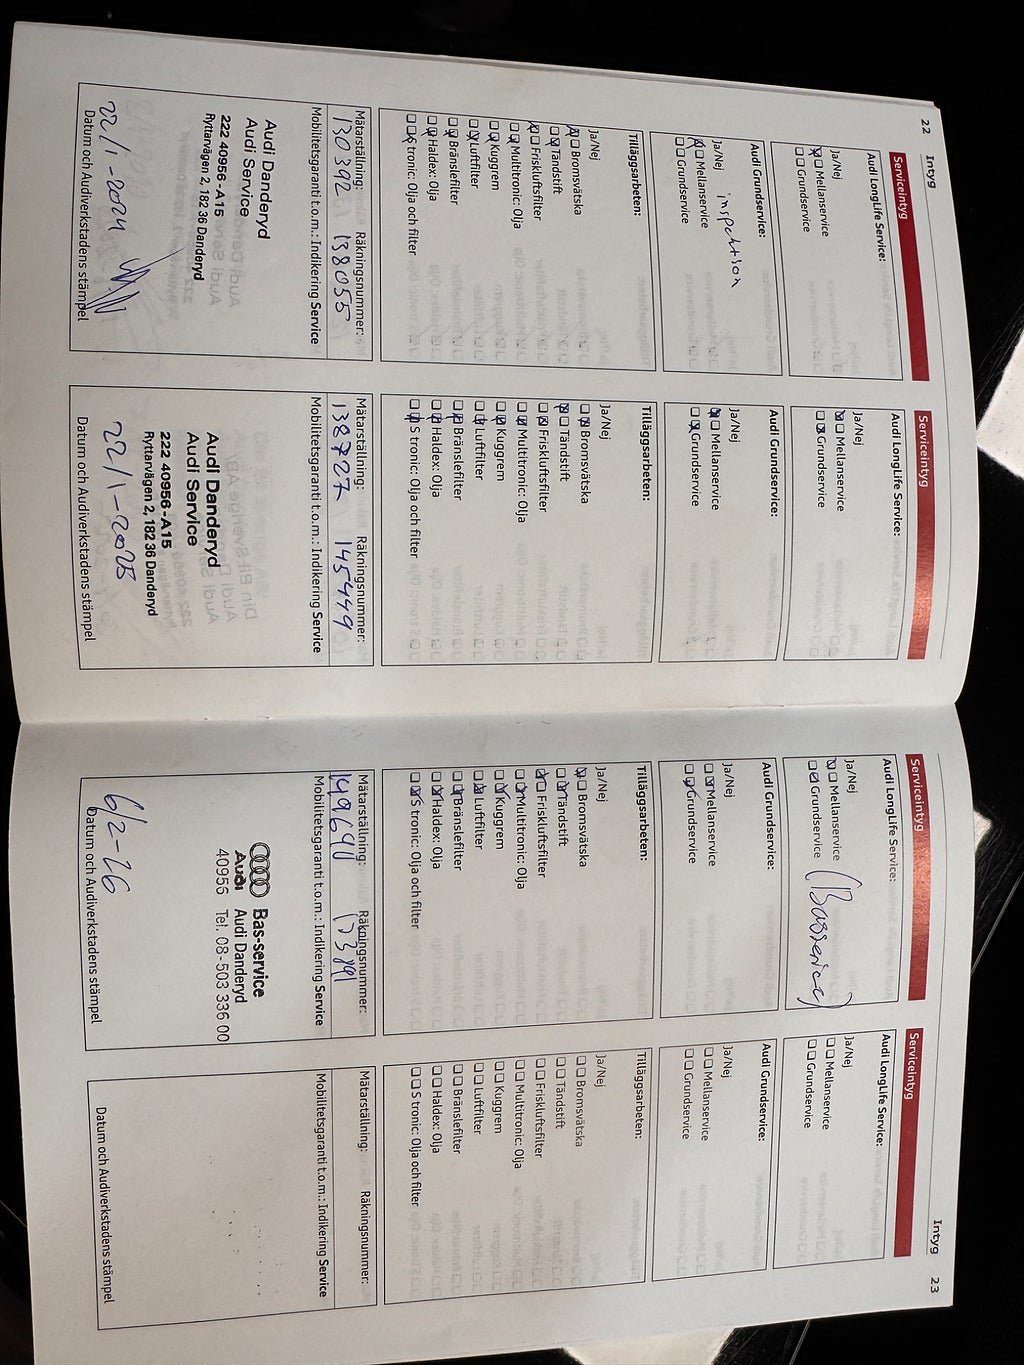 22
Intyg
Serviceintyg
Audi LongLife Service:
Ja/Nej
Mellanservice
Grundservice
Audi Grundservice:
Ja/Nej inspektion
Mellanservice
Grundservice
Tilläggsarbeten:
Ja/Nej
Bromsvätska
Tändstift
Friskluftsfilter
Multitronic: Olja
Kuggrem
Luftfilter
Bränslefilter
Haldex: Olja
S tronic: Olja och filter
Mätarställning: Räkningsnummer:
130392 138055
Mobilitetsgaranti t.o.m.: Indikering Service
Audi Danderyd
Audi Service
222 40956-A15
Ryttarvägen 2, 182 36 Danderyd
22/1-2024
Datum och Audiverkstadens stämpel
Serviceintyg
Audi LongLife Service:
Ja/Nej
Mellanservice
Grundservice
Audi Grundservice:
Ja/Nej
Mellanservice
Grundservice
Tilläggsarbeten:
Ja/Nej
Bromsvätska
Tändstift
Friskluftsfilter
Multitronic: Olja
Kuggrem
Luftfilter
Bränslefilter
Haldex: Olja
S tronic: Olja och filter
Mätarställning: Räkningsnummer:
138727 145449
Mobilitetsgaranti t.o.m.: Indikering Service
Audi Danderyd
Audi Service
222 40956-A15
Ryttarvägen 2, 182 36 Danderyd
22/1-2025
Datum och Audiverkstadens stämpel
Serviceintyg
Audi LongLife Service:
Ja/Nej
Mellanservice (Basservice)
Grundservice
Audi Grundservice:
Ja/Nej
Mellanservice
Grundservice
Tilläggsarbeten:
Ja/Nej
Bromsvätska
Tändstift
Friskluftsfilter
Multitronic: Olja
Kuggrem
Luftfilter
Bränslefilter
Haldex: Olja
S tronic: Olja och filter
Mätarställning: Räkningsnummer:
149690
Mobilitetsgaranti t.o.m.: Indikering Service
Bas-service
Audi Audi Danderyd
40956 Tel. 08-503 336 00
6/2-26
Datum och Audiverkstadens stämpel
Intyg
23
Serviceintyg
Audi LongLife Service:
Ja/Nej
Mellanservice
Grundservice
Audi Grundservice:
Ja/Nej
Mellanservice
Grundservice
Tilläggsarbeten:
Ja/Nej
Bromsvätska
Tändstift
Friskluftsfilter
Multitronic: Olja
Kuggrem
Luftfilter
Bränslefilter
Haldex: Olja
S tronic: Olja och filter
Mätarställning: Räkningsnummer:
Mobilitetsgaranti t.o.m.: Indikering Service
Datum och Audiverkstadens stämpel